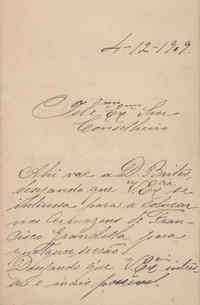 4-12-909.
Illmo Exmo Snr
Conselheiro
Ahi vae a D. Brites,
desejando que V Exa se
interesse para a collocar
nos Armazens de Fran-
cisco Grandella, para
qualquer secção.
Desejando que V Exa
e mais